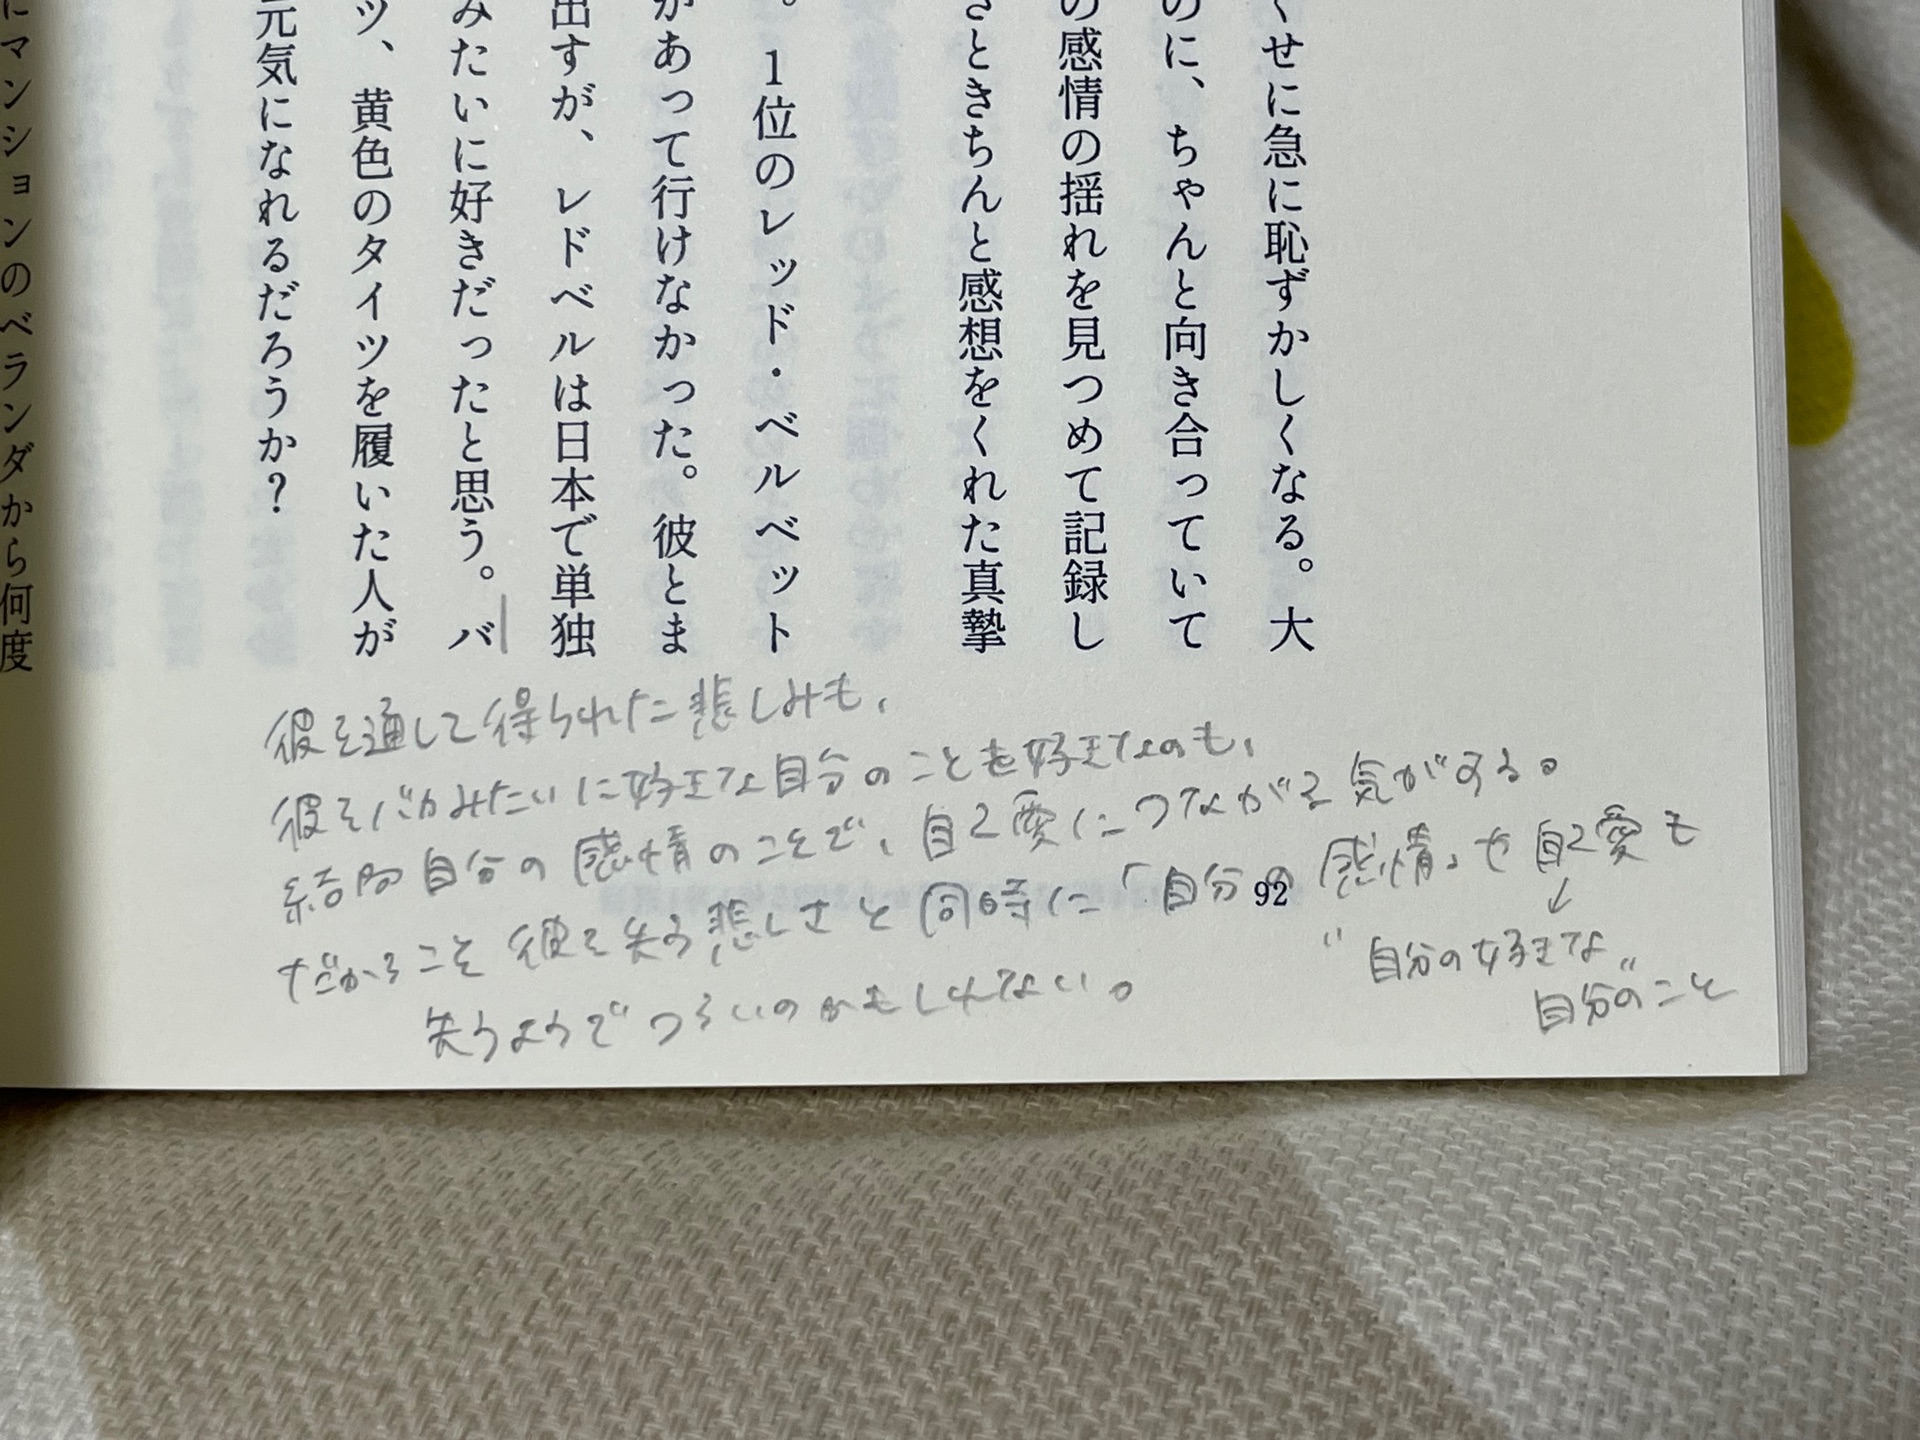 くせに急に恥ずかしくなる。大
のに、ちゃんと向き合っていて
の感情の揺れを見つめて記録し
さときちんと感想をくれた真摯
。1位のレッド・ベルベット
があって行けなかった。彼とま
出すが、レドベルは日本で単独
みたいに好きだったと思う。バ
ツ、黄色のタイツを履いた人が
元気になれるだろうか?
にマンションのベランダから何度
彼を通して得られた悲しみも、
彼をバカみたいに好きな自分のことを好きなのも、
結局自分の感情のことで、自己愛につながる気がする。
だからこそ彼を失う悲しさと同時に「自分の感情」や自己愛も
失うようでつらいのかもしれない。
↓
"自分の好きな
自分"のこと
92